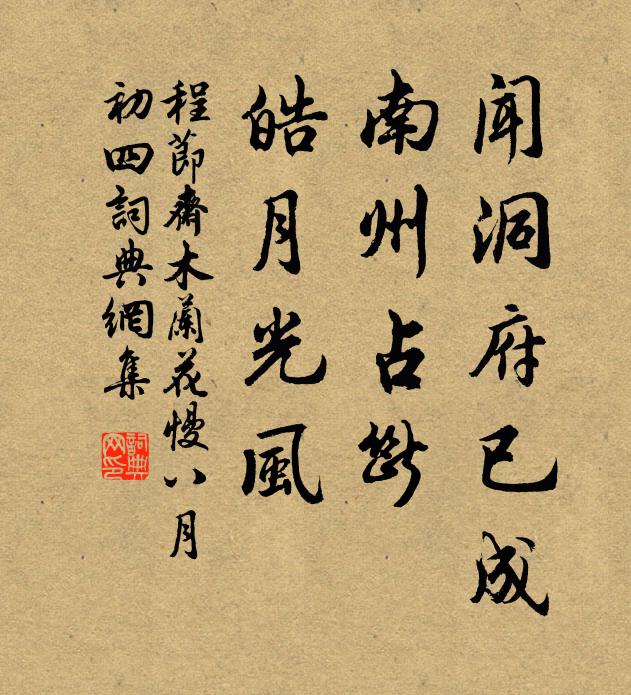 闻洞府已成
南州占断
皓月光風
程節齋木蘭花慢八月
初四詞典網集
詞典
网印